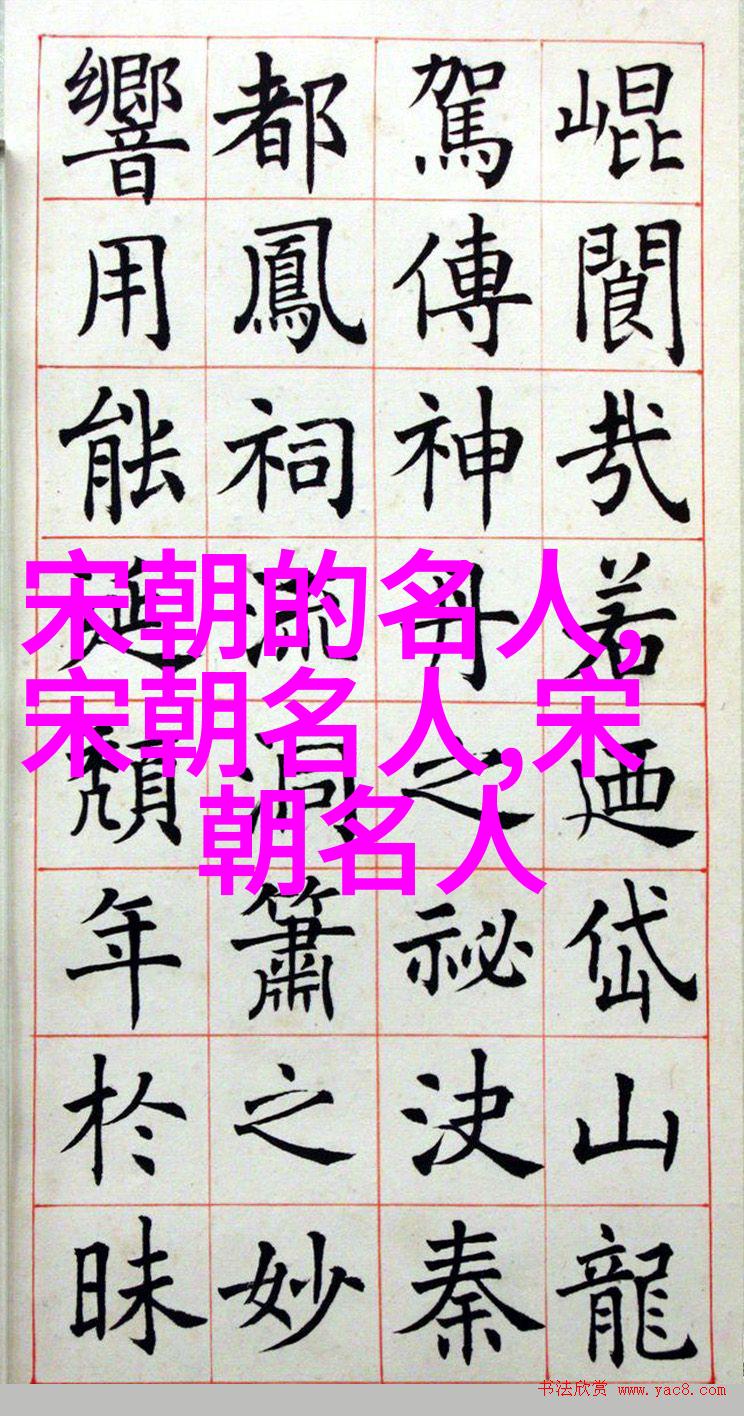 崐閬若廼岱山龍
駕傳神丹之祕決秦
都鳳祠流洞簫之妙
響用能延頹年於昧
宋朝的名人,
宋朝名人,宋
朝名人
书法欣赏 www.yac8.com